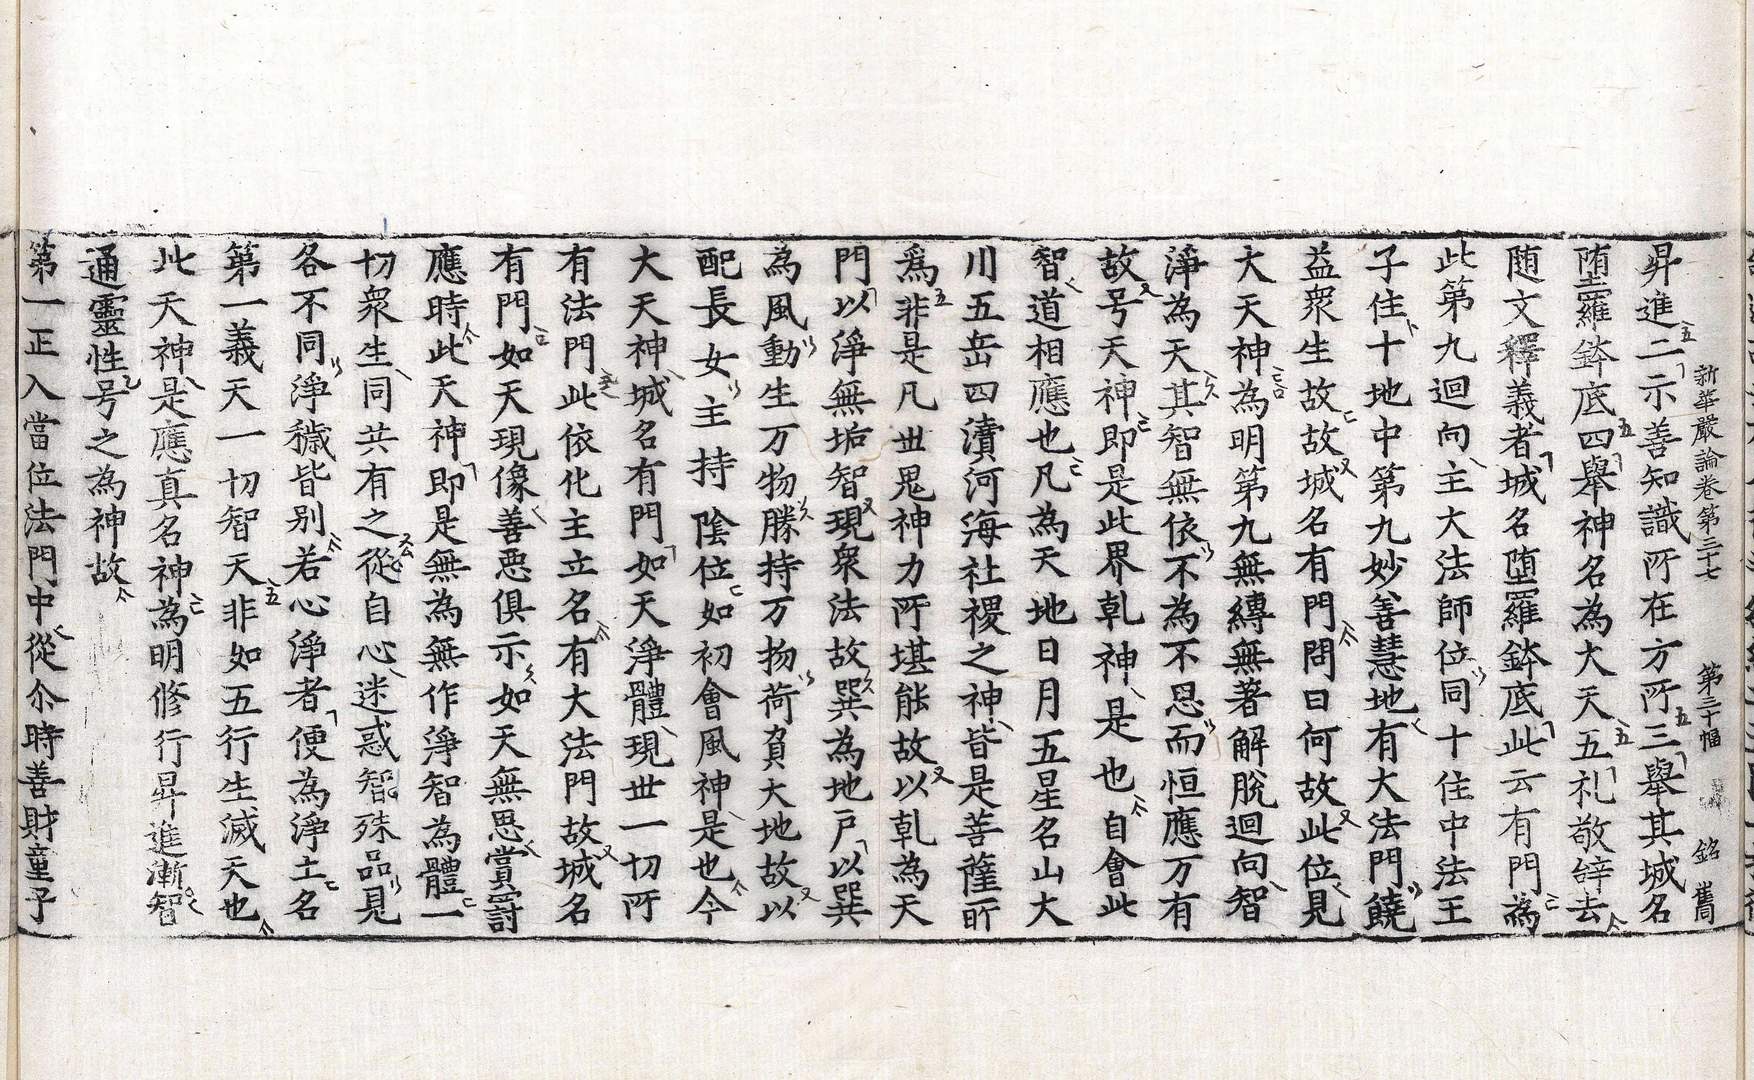 新華嚴論卷第三十七 第三十幅 銘 舊
昇進二示善知識所在方所三舉其城名
堕羅鉢底四舉神名為大天五礼敬辝去
随文釋義者城名堕羅鉢底此云有門為
此第九迴向主大法師位同十住中法王
子住十地中第九妙善慧地有大法門饒
益衆生故故城名有門問曰何故此位見
大天神為明第九無縛無著解脫迴向智
淨為天其智無依不為不思而恒應万有
故号天神即是此界乹神是也自會此
智道相應也凡為天地日月五星名山大
川五岳四瀆河海社稷之神皆是菩薩所
爲非是凡世鬼神力所堪能故以乹為天
門以淨無垢智現衆法故巽為地戸以巽
為風動生万物勝持万物荷負大地故以
配長女主持陰位如初會風神是也今
大天神城名有門如天淨體現世一切所
有法門此依化主立名有大法門故城名
有門如天現像善惡俱示如天無思賞罸
應時此天神即是無為無作淨智為體一
切衆生同共有之從自心迷惑智殊品見
各不同淨穢皆别若心淨者便為淨土名
第一義天一切智天非如五行生滅天也
此天神是應真名神為明修行昇進漸智
通靈性号之為神故
第一正入當位法門中從尒時善財童子